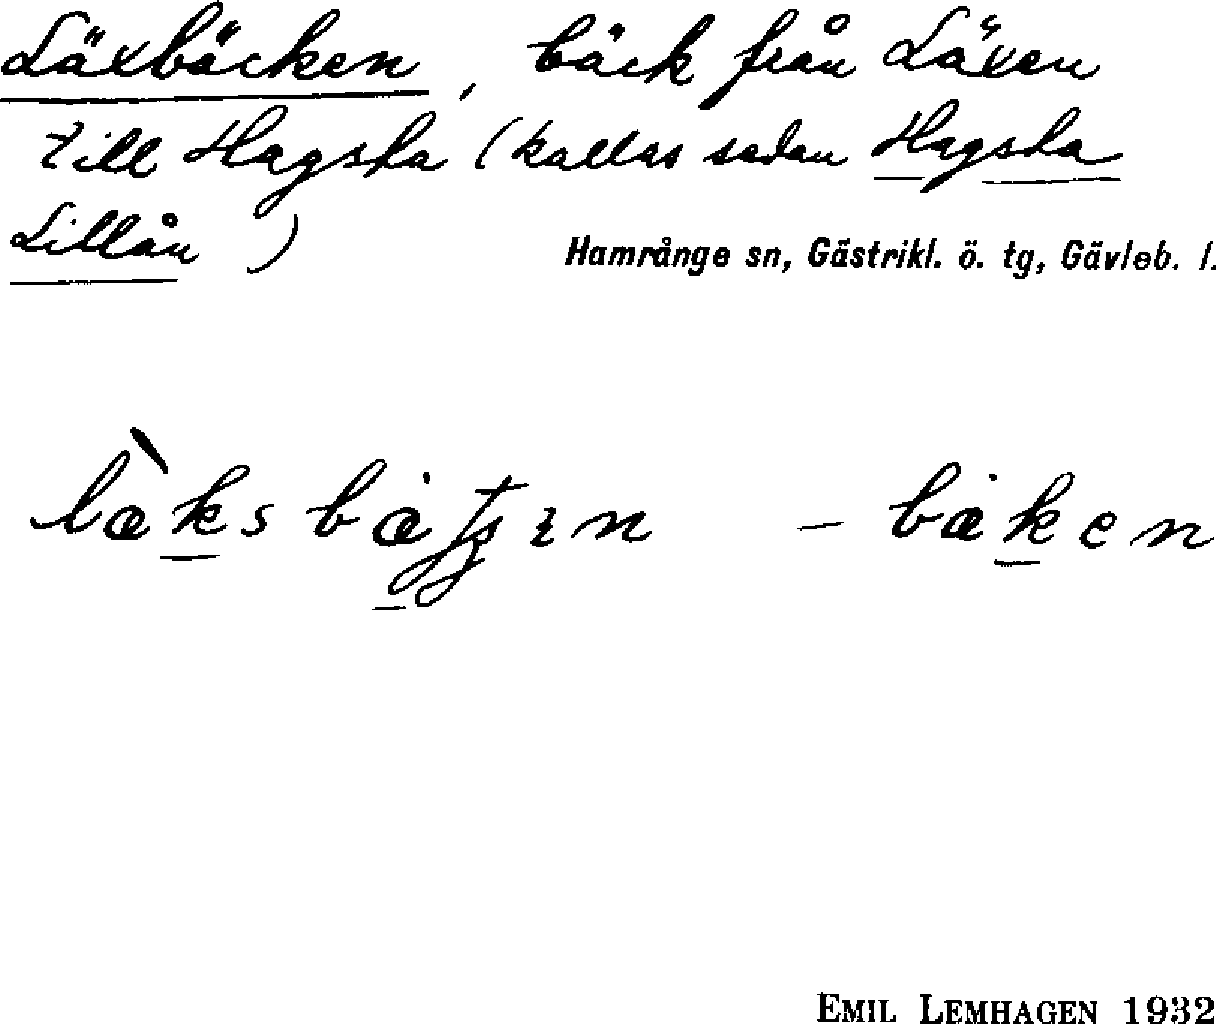 Läxbäcken, bäck från Läxen
till Hagsta (kallas sedan Hagsta
Lillån)
Hamrånge sn, Gästrikl. ö. tg, Gävleb. l.
læ̀ks bæ - bæken
EMIL LEMHAGEN 1932